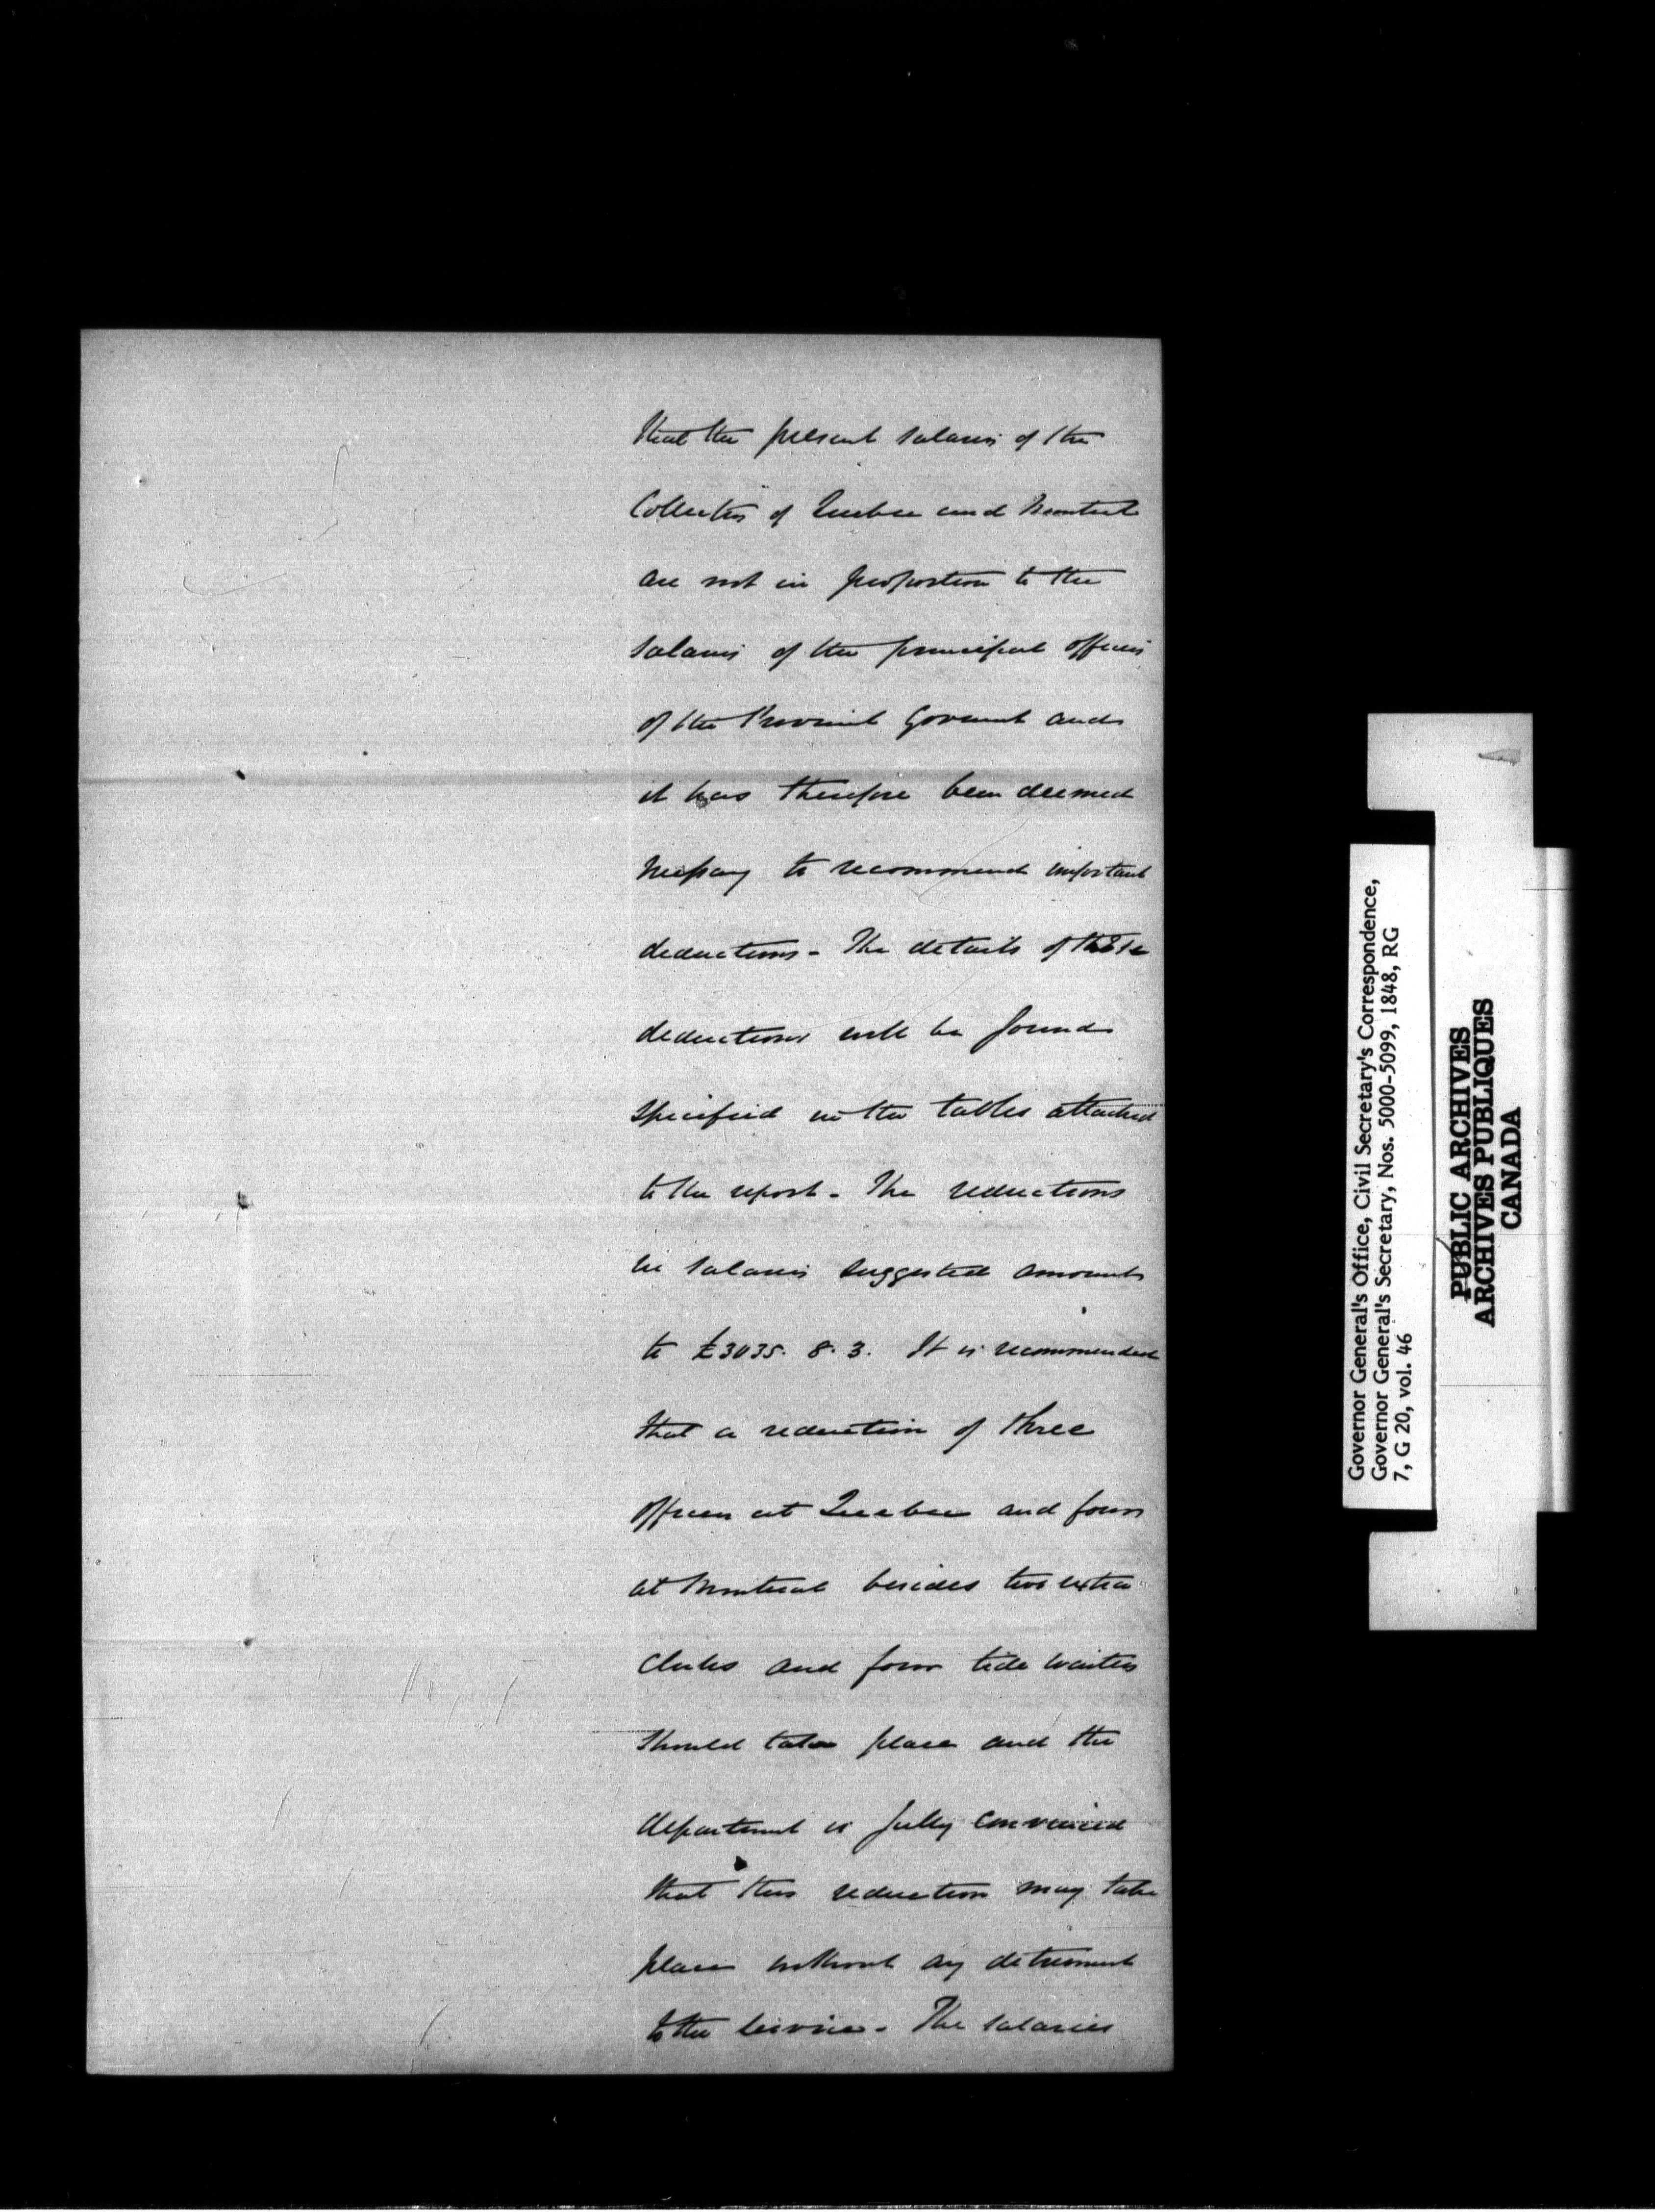 that the present salaries of the
Collectors of Quebec and Montreal
are not in proportion to the
salaries of the principal officers
of the Provincial Goverment and
it has therefore been deemed
necessary to recommend important
deductions - The details of these
deductions will be found
specified in the tables attached
to the report - The reductions
in salaries suggested amounts
to £3035. 8. 3. It is recommended
that a reduction of three
officers at Quebec and four
at Montreal besides two extra
clerks and four tide waiters
should take place and the
department is fully convinced
that this reduction may take
place without any detriment
to the service - The salaries
Governor General's Office, Civil Secretary's Correspondence,
Governor General's Secretary, Nos. 5000-5099, 1848, RG
7, G 20, vol. 46
PUBLIC ARCHIVES
ARCHIVES PUBLIQUES
CANADA